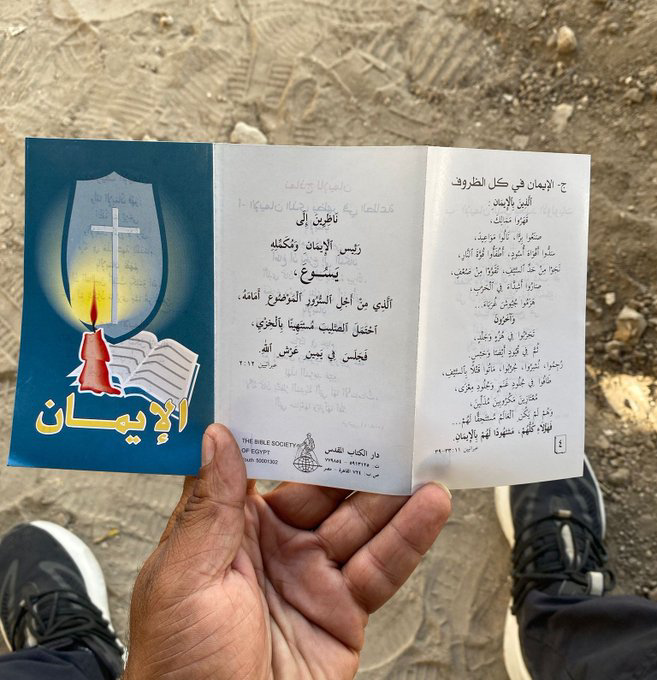 الإيمـــان
نَاظِرِينَ إِلَى
رَئِيسِ الإِيمَانِ وَمُكَمِّلِهِ
يَسُـــوعَ
الَّذِي مِنْ أَجْلِ السُّرُورِ الْمَوْضُوعِ أَمَامَهُ،
احْتَمَلَ الصَّلِيبَ مُسْتَهِينًا بِالْخِزْيِ،
فَجَلَسَ فِي يَمِينِ عَرْشِ اللهِ.
عبرانيين ١٢:٢
THE BIBLE SOCIETY
OF EGYPT
50001302
دار الكتاب المقدس
ص.ب: ٧٢٤ القاهرة - مصر
ج- الإيمان في كل الظروف
الَّذِينَ بِالإِيمَانِ:
قَهَرُوا مَمَالِكَ،
صَنَعُوا بِرًّا، نَالُوا مَوَاعِيدَ،
سَدُّوا أَفْوَاهَ أُسُودٍ، أَطْفَأُوا قُوَّةَ النَّارِ،
نَجَوْا مِنْ حَدِّ السَّيْفِ، تَقَوَّوْا مِنْ ضُعْفٍ،
صَارُوا أَشِدَّاءَ فِي الْحَرْبِ،
هَزَمُوا جُيُوشَ غُرَبَاءَ...
وَآخَرُونَ
تَجَرَّبُوا فِي هُزُءٍ وَجَلْدٍ،
ثُمَّ فِي قُيُودٍ أَيْضًا وَحَبْسٍ
رُجِمُوا، نُشِرُوا، جُرِّبُوا، مَاتُوا قَتْلاً بِالسَّيْفِ،
طَافُوا فِي جُلُودِ غَنَمٍ وَجُلُودِ مِعْزَى،
مُعْتَازِينَ مَكْرُوبِينَ مُذَلِّينَ،
وَهُمْ لَمْ يَكُنِ الْعَالَمُ مُسْتَحِقًّا لَهُمْ...
فَهؤُلاَءِ كُلُّهُمْ، مَشْهُودًا لَهُمْ بِالإِيمَانِ.
عبرانيين ١١: ٣٣-٣٩
٤